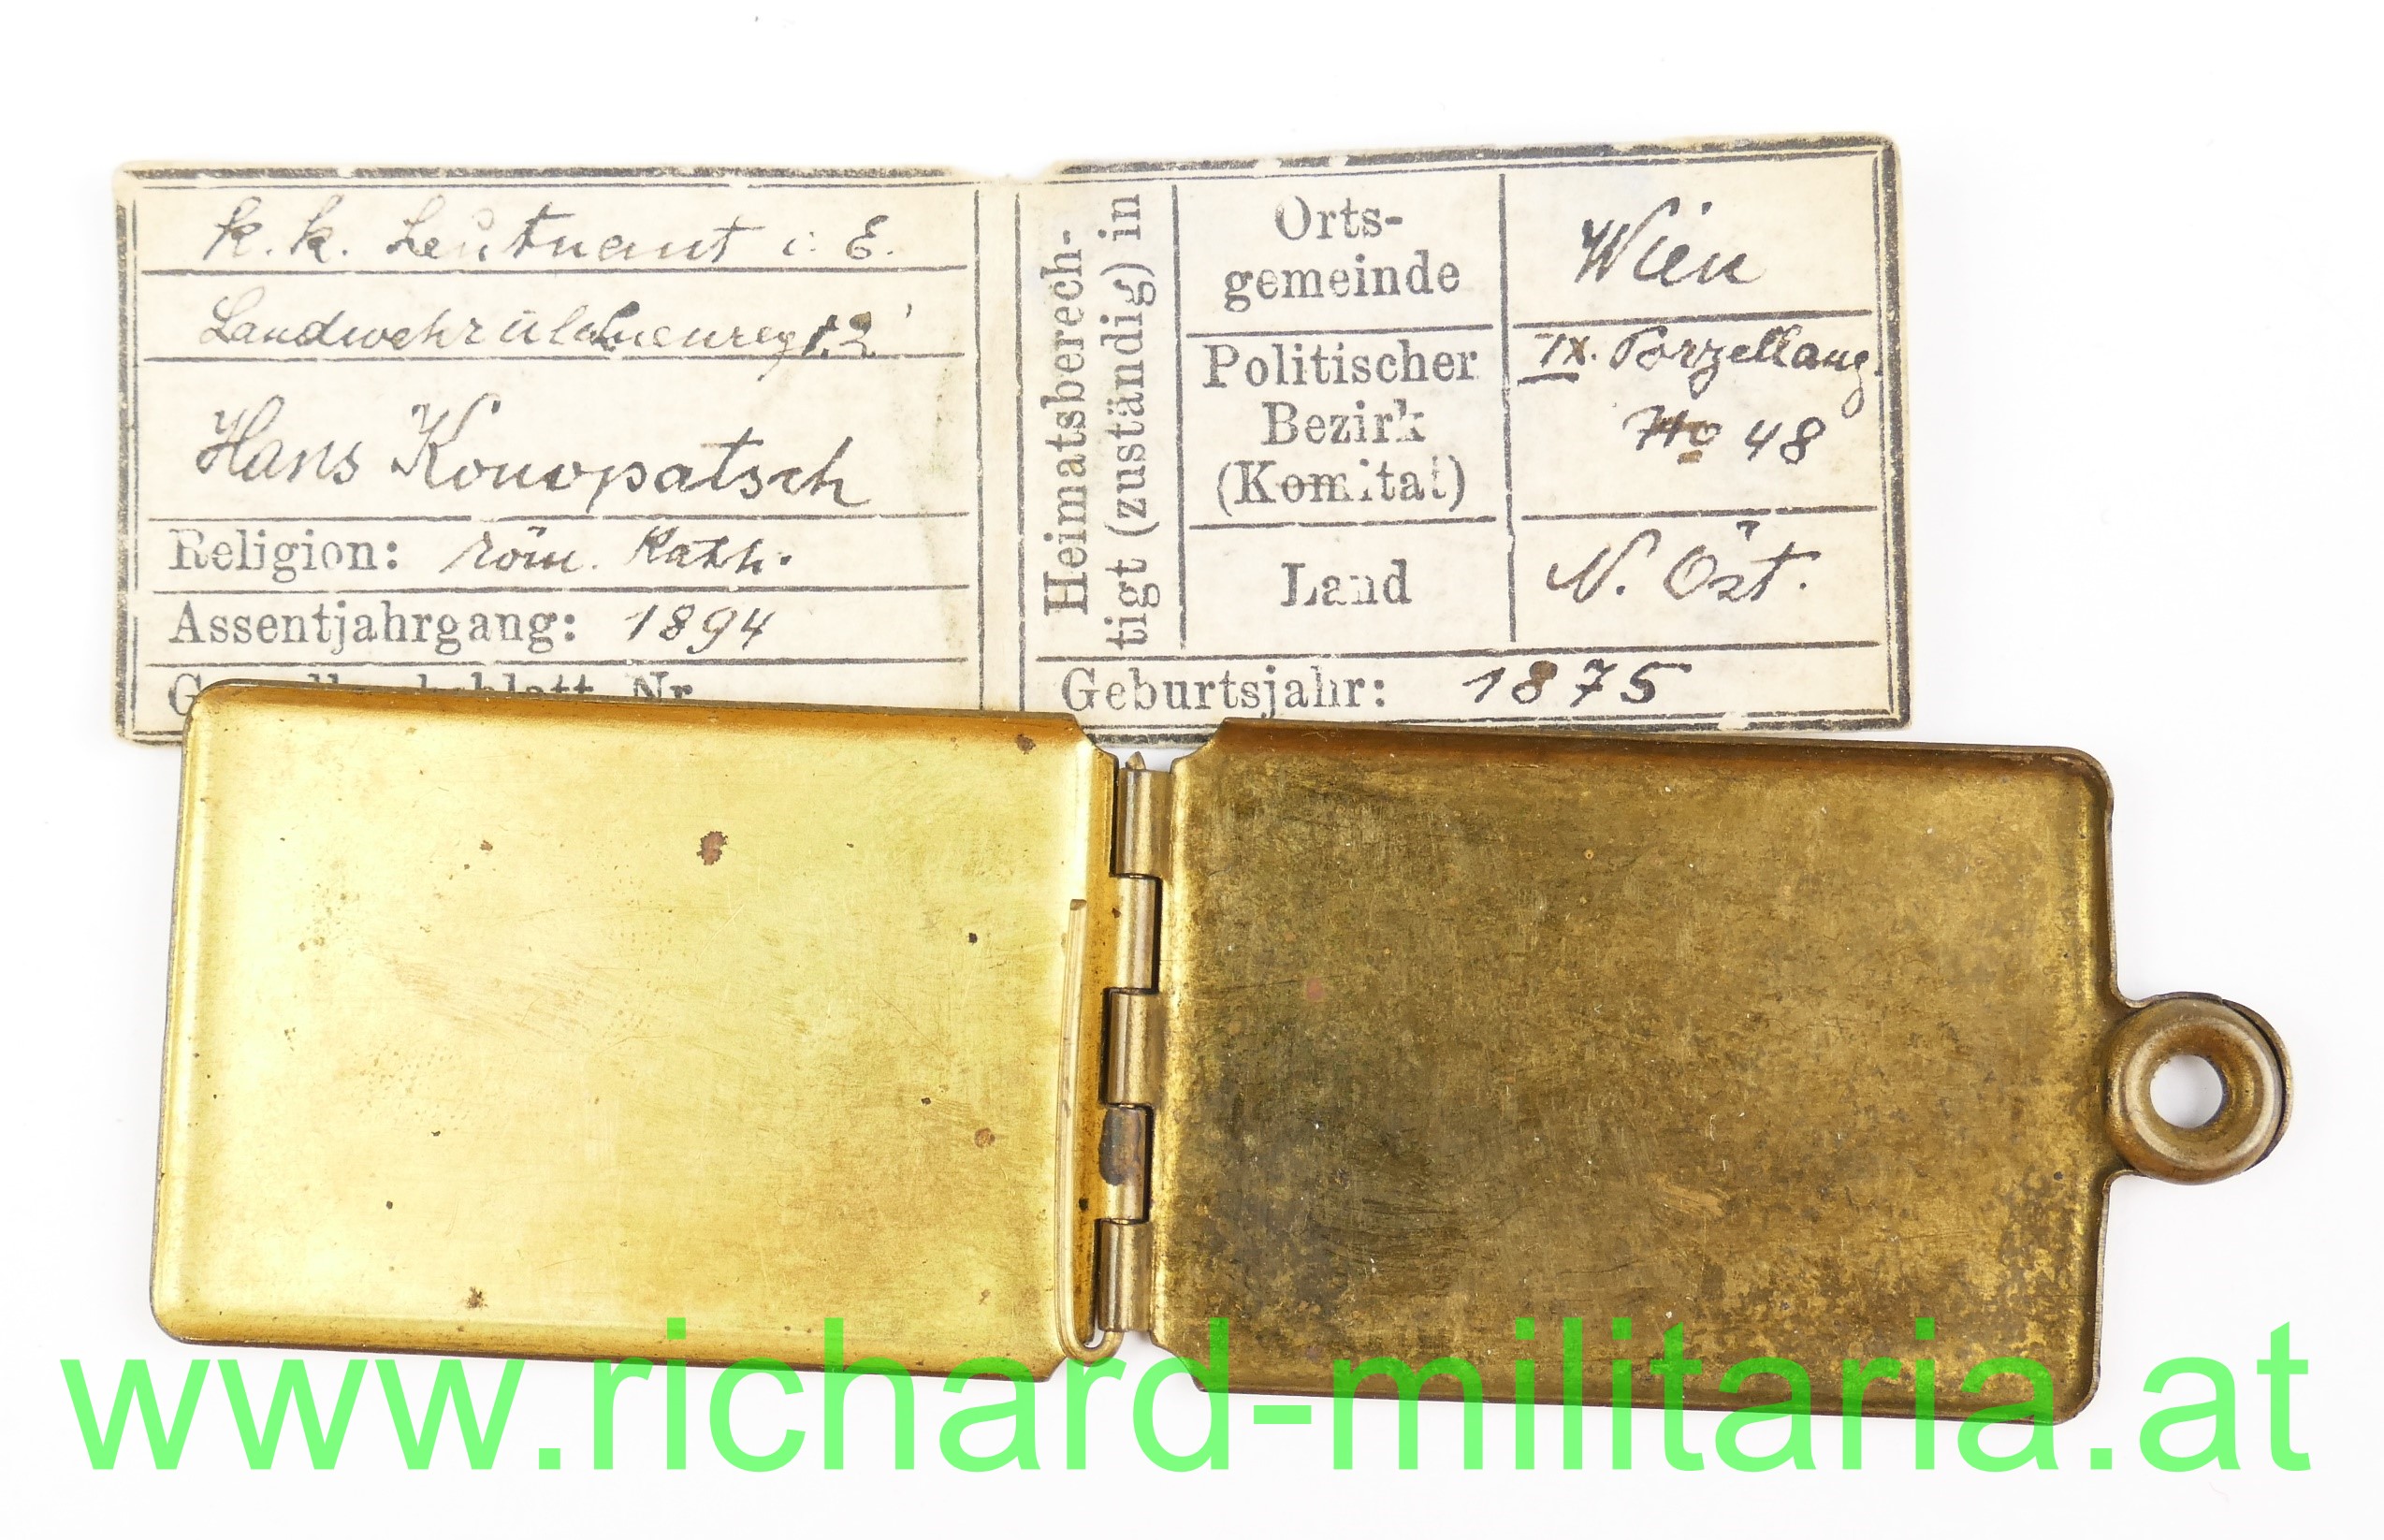 k. k. Leutnant i. E.
Landwehrulanenregt. 2
Hans Konopatsch
Religion: röm. Kath.
Assentjahrgang: 1894
Nr.
Heimatsberech-
tigt (zuständig) in
Orts-
gemeinde
Wien
Politischer
Bezirk
(Komitat)
IX. Porzellang.
No 48
Land
N. Öst.
Geburtsjahr: 1875
www.richard-militaria.at